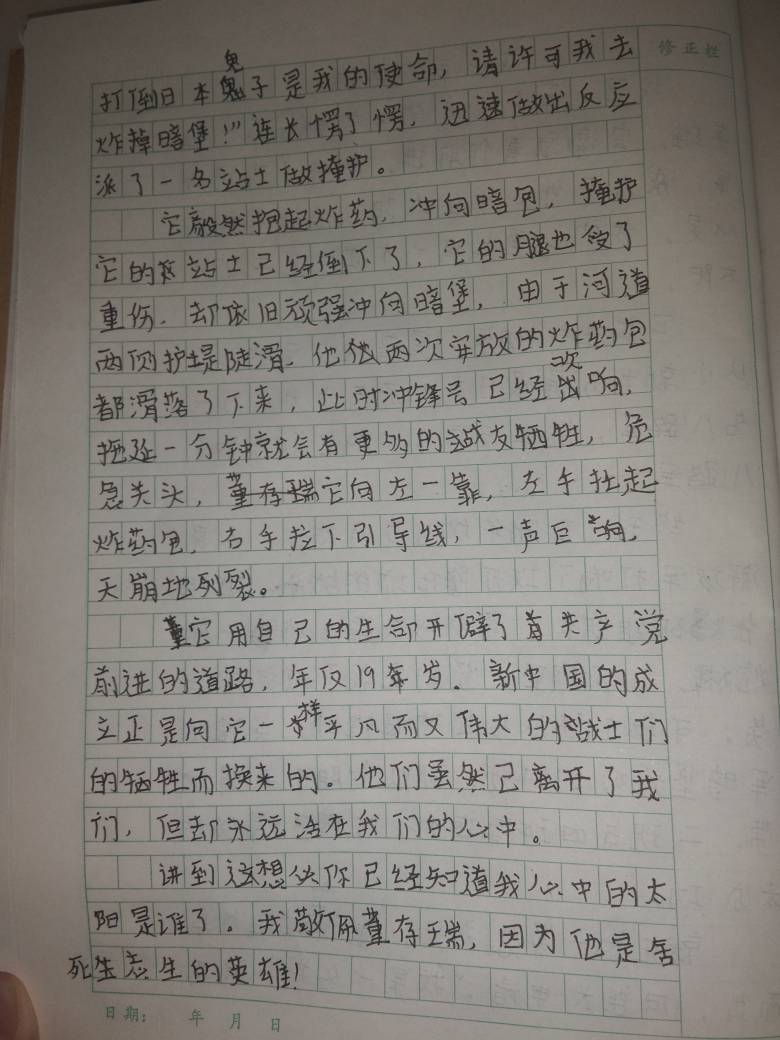 修正栏
打倒日本鬼子是我的使命，请许可我去
炸掉暗堡！”连长愣了愣，迅速做出反应
派了一名站士做掩护。
它毅然抱起炸药，冲向暗包，掩护
它的站士已经倒下了，它的腿也受了
重伤，却依旧顽强冲向暗堡，由于河道
两侧护堤陡滑，他两次安放的炸药包
都滑落了下来，此时冲锋号已经吹响，
拖延一分钟就会有更多的战友牺牲，危
急关头，它向左一靠，左手拄起
炸药包，右手拉下引导线，一声巨响，
天崩地裂。
它用自己的生命开僻了首共产党
前进的道路，年仅19岁。新中国的成
立正是向它一样平凡而又伟大的战士们
的牺牲而换来的。他们虽然已离开了我
们，但却永远活在我们的心中。
讲到这想必你已经知道我心中的太
阳是谁了。我敬佩董存瑞，因为他是舍
死生忘生的英雄！
日期： 年 月 日